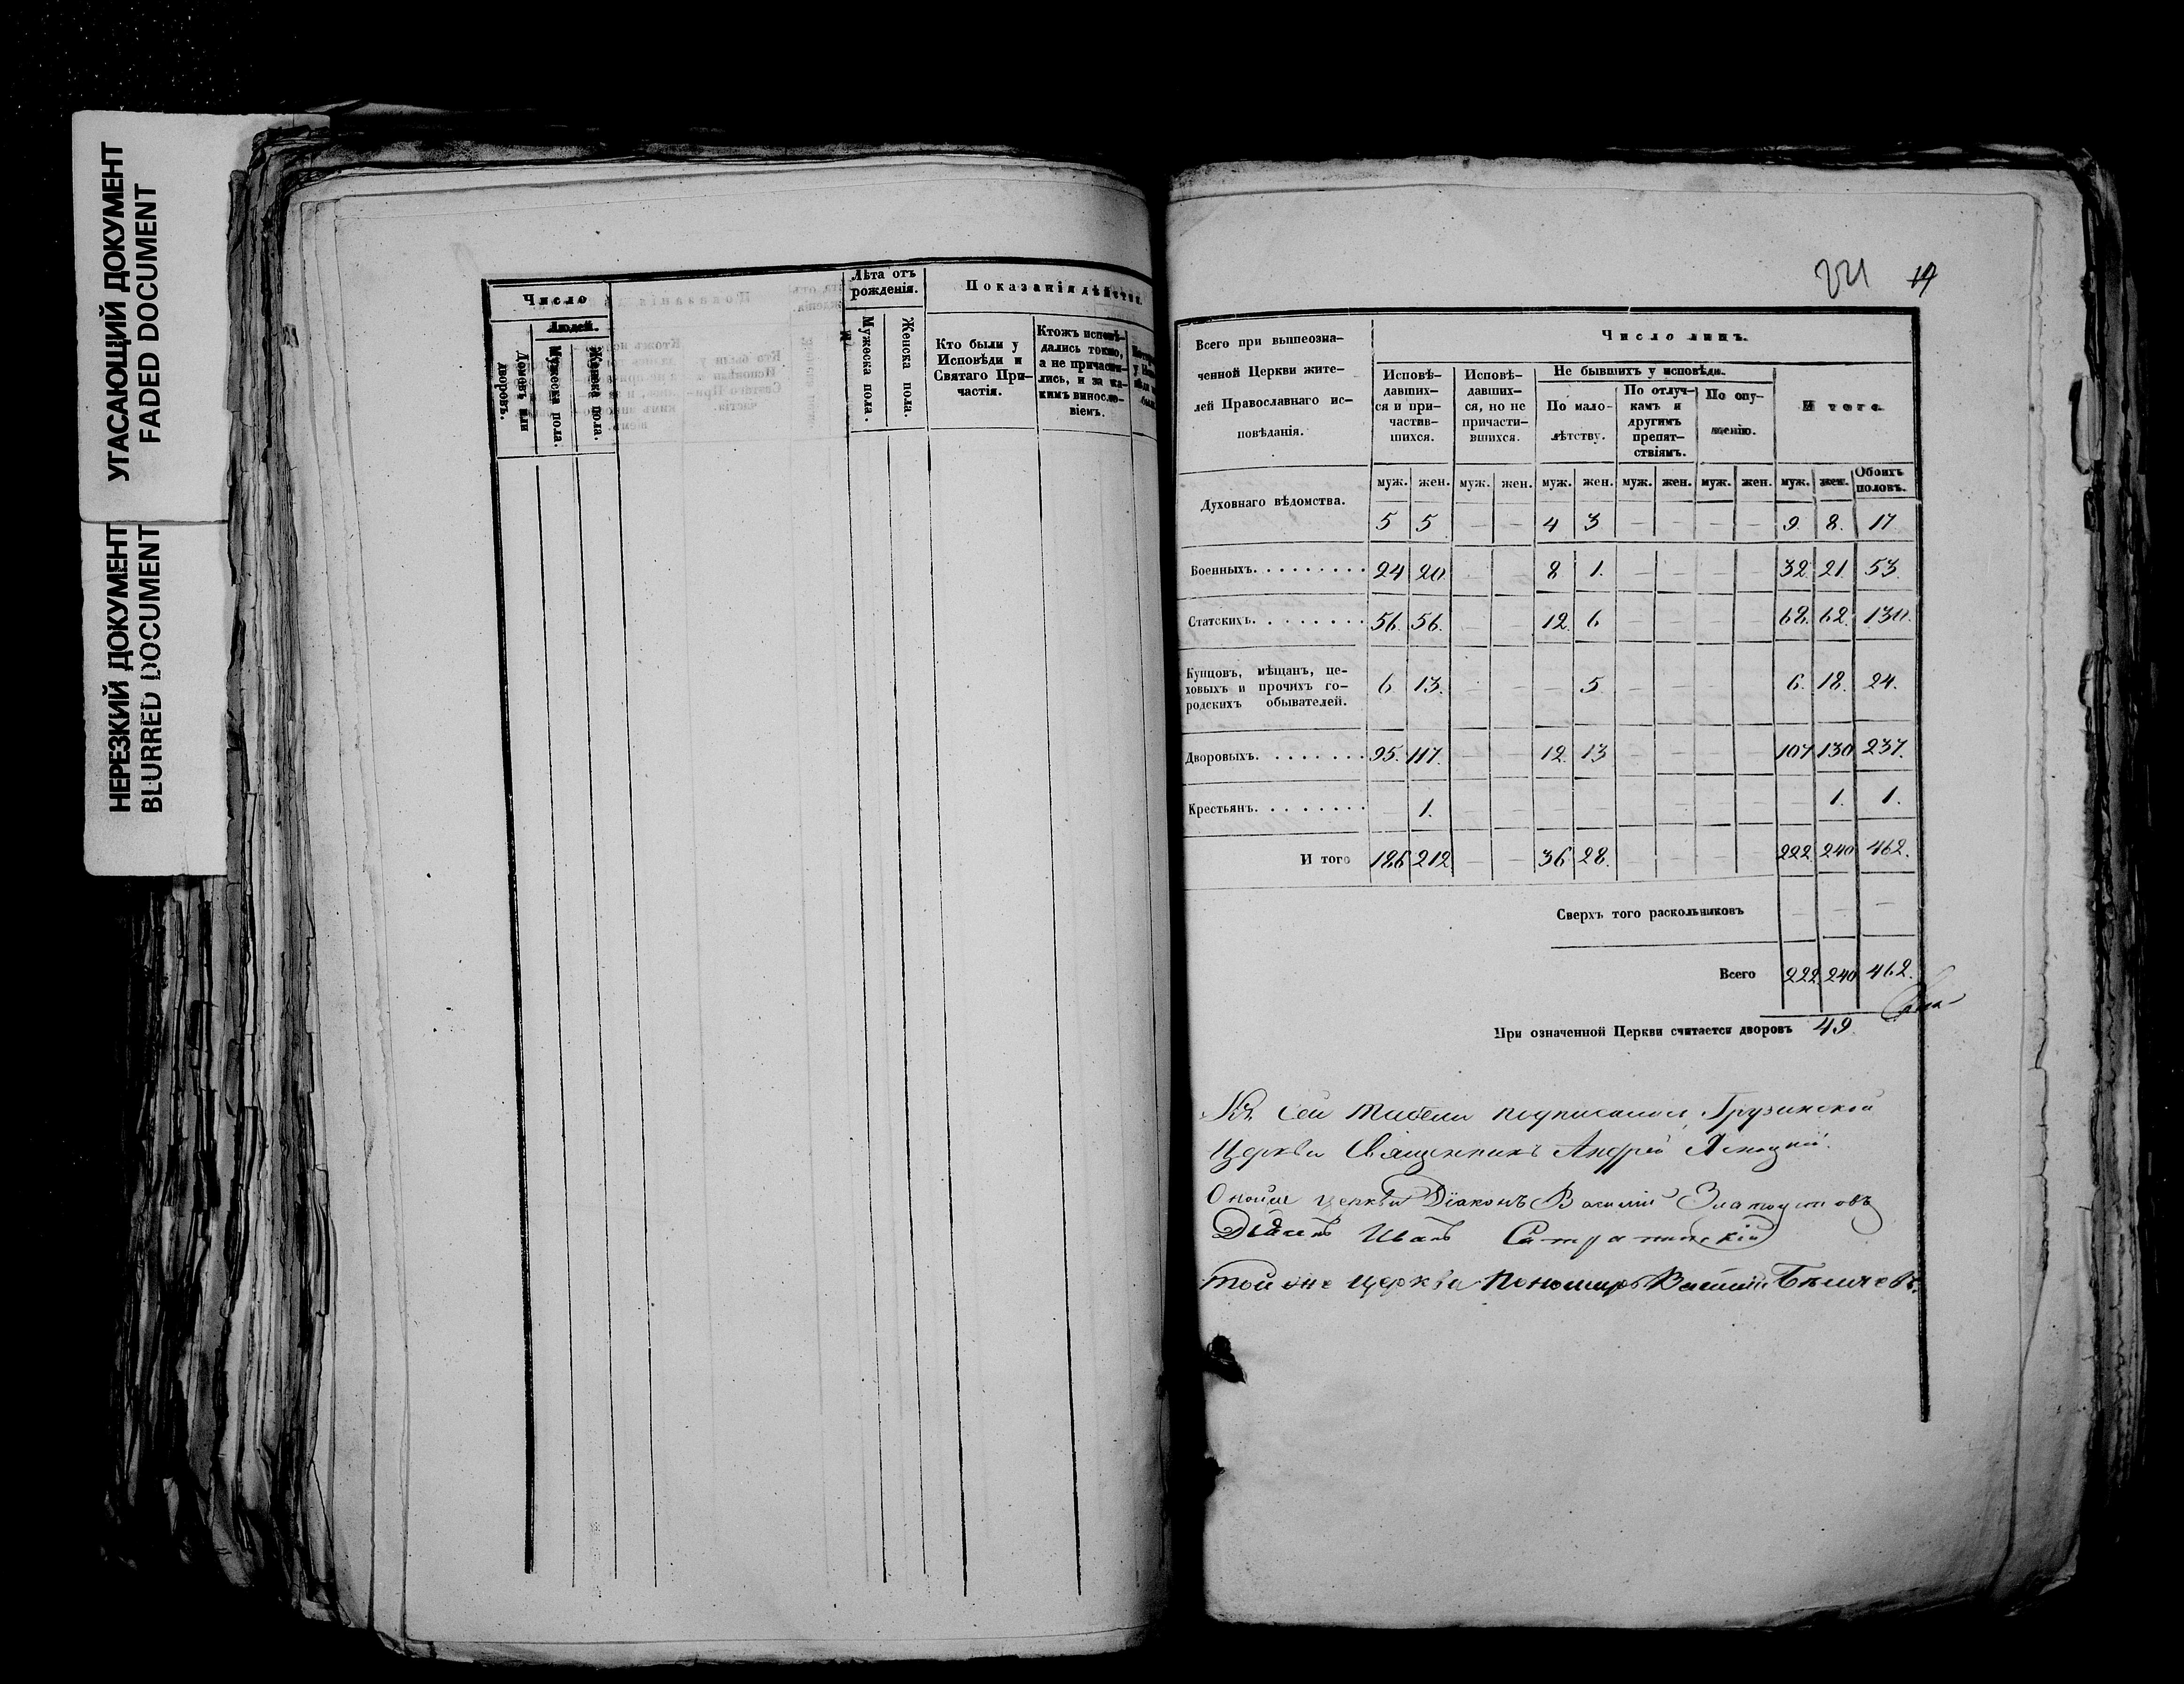 УГАСАЮЩИЙ ДОКУМЕНТ
FADED DOCUMENT
НЕРЕЗКИЙ ДОКУМЕНТ
BLURRED DOCUMENT
Число
Людей.
Домовъ или дворовъ.
Мужеска пола.
Женска пола.
Лѣта отъ
рожденія.
Мужеска пола.
Женска пола.
Показанія
Кто были у
Исповѣди и
Святаго При-
частія.
Ктожъ исповѣ-
дались токмо,
а не причасти-
лись, и за ка-
кимъ винословіемъ.
221 19
Всего при вышеозна-
ченной Церкви жите-
лей Православнаго ис-
повѣданія.
Число лицъ.
Исповѣ-
давших-
ся и при-
частив-
шихся.
Исповѣ-
давших-
ся, но не
причасти-
вшихся.
Не бывшихъ у исповѣди.
По мало-
лѣтству.
По отлуч-
камъ и
другимъ
препят-
ствіямъ.
По опу-
щенію.
И того.
муж. жен. муж. жен. муж. жен. муж. жен. муж. жен. муж. жен. Обоихъ половъ.
Духовнаго вѣдомства. 5 5 — — 4 3 — — — — 9. 8. 17
Военныхъ. 24 20 8 1. — — — — 32. 21. 53.
Статскихъ. 56. 56. — — 12. 6 — — — — 68. 62. 130.
Купцовъ, мѣщанъ, це-
ховыхъ и прочихъ го-
родскихъ обывателей. 6. 13. — — — 5 — — — — 6. 18. 24.
Дворовыхъ. 95. 117. — — 12. 13 — — — — 107 130 237.
Крестьянъ. — 1. — — — — — — — — — 1. 1.
И того 186 212 — — 36 28. — — — — 222 240 462.
Сверхъ того раскольниковъ — — —
Всего 222 240 462.
При означенной Церкви считается дворовъ 49.
Къ сей табели подписался Грузинской
Церкви Священникъ Андрей
церкви Діаконъ Василій Златоустовъ
Иванъ
Той же церкви Пономарь